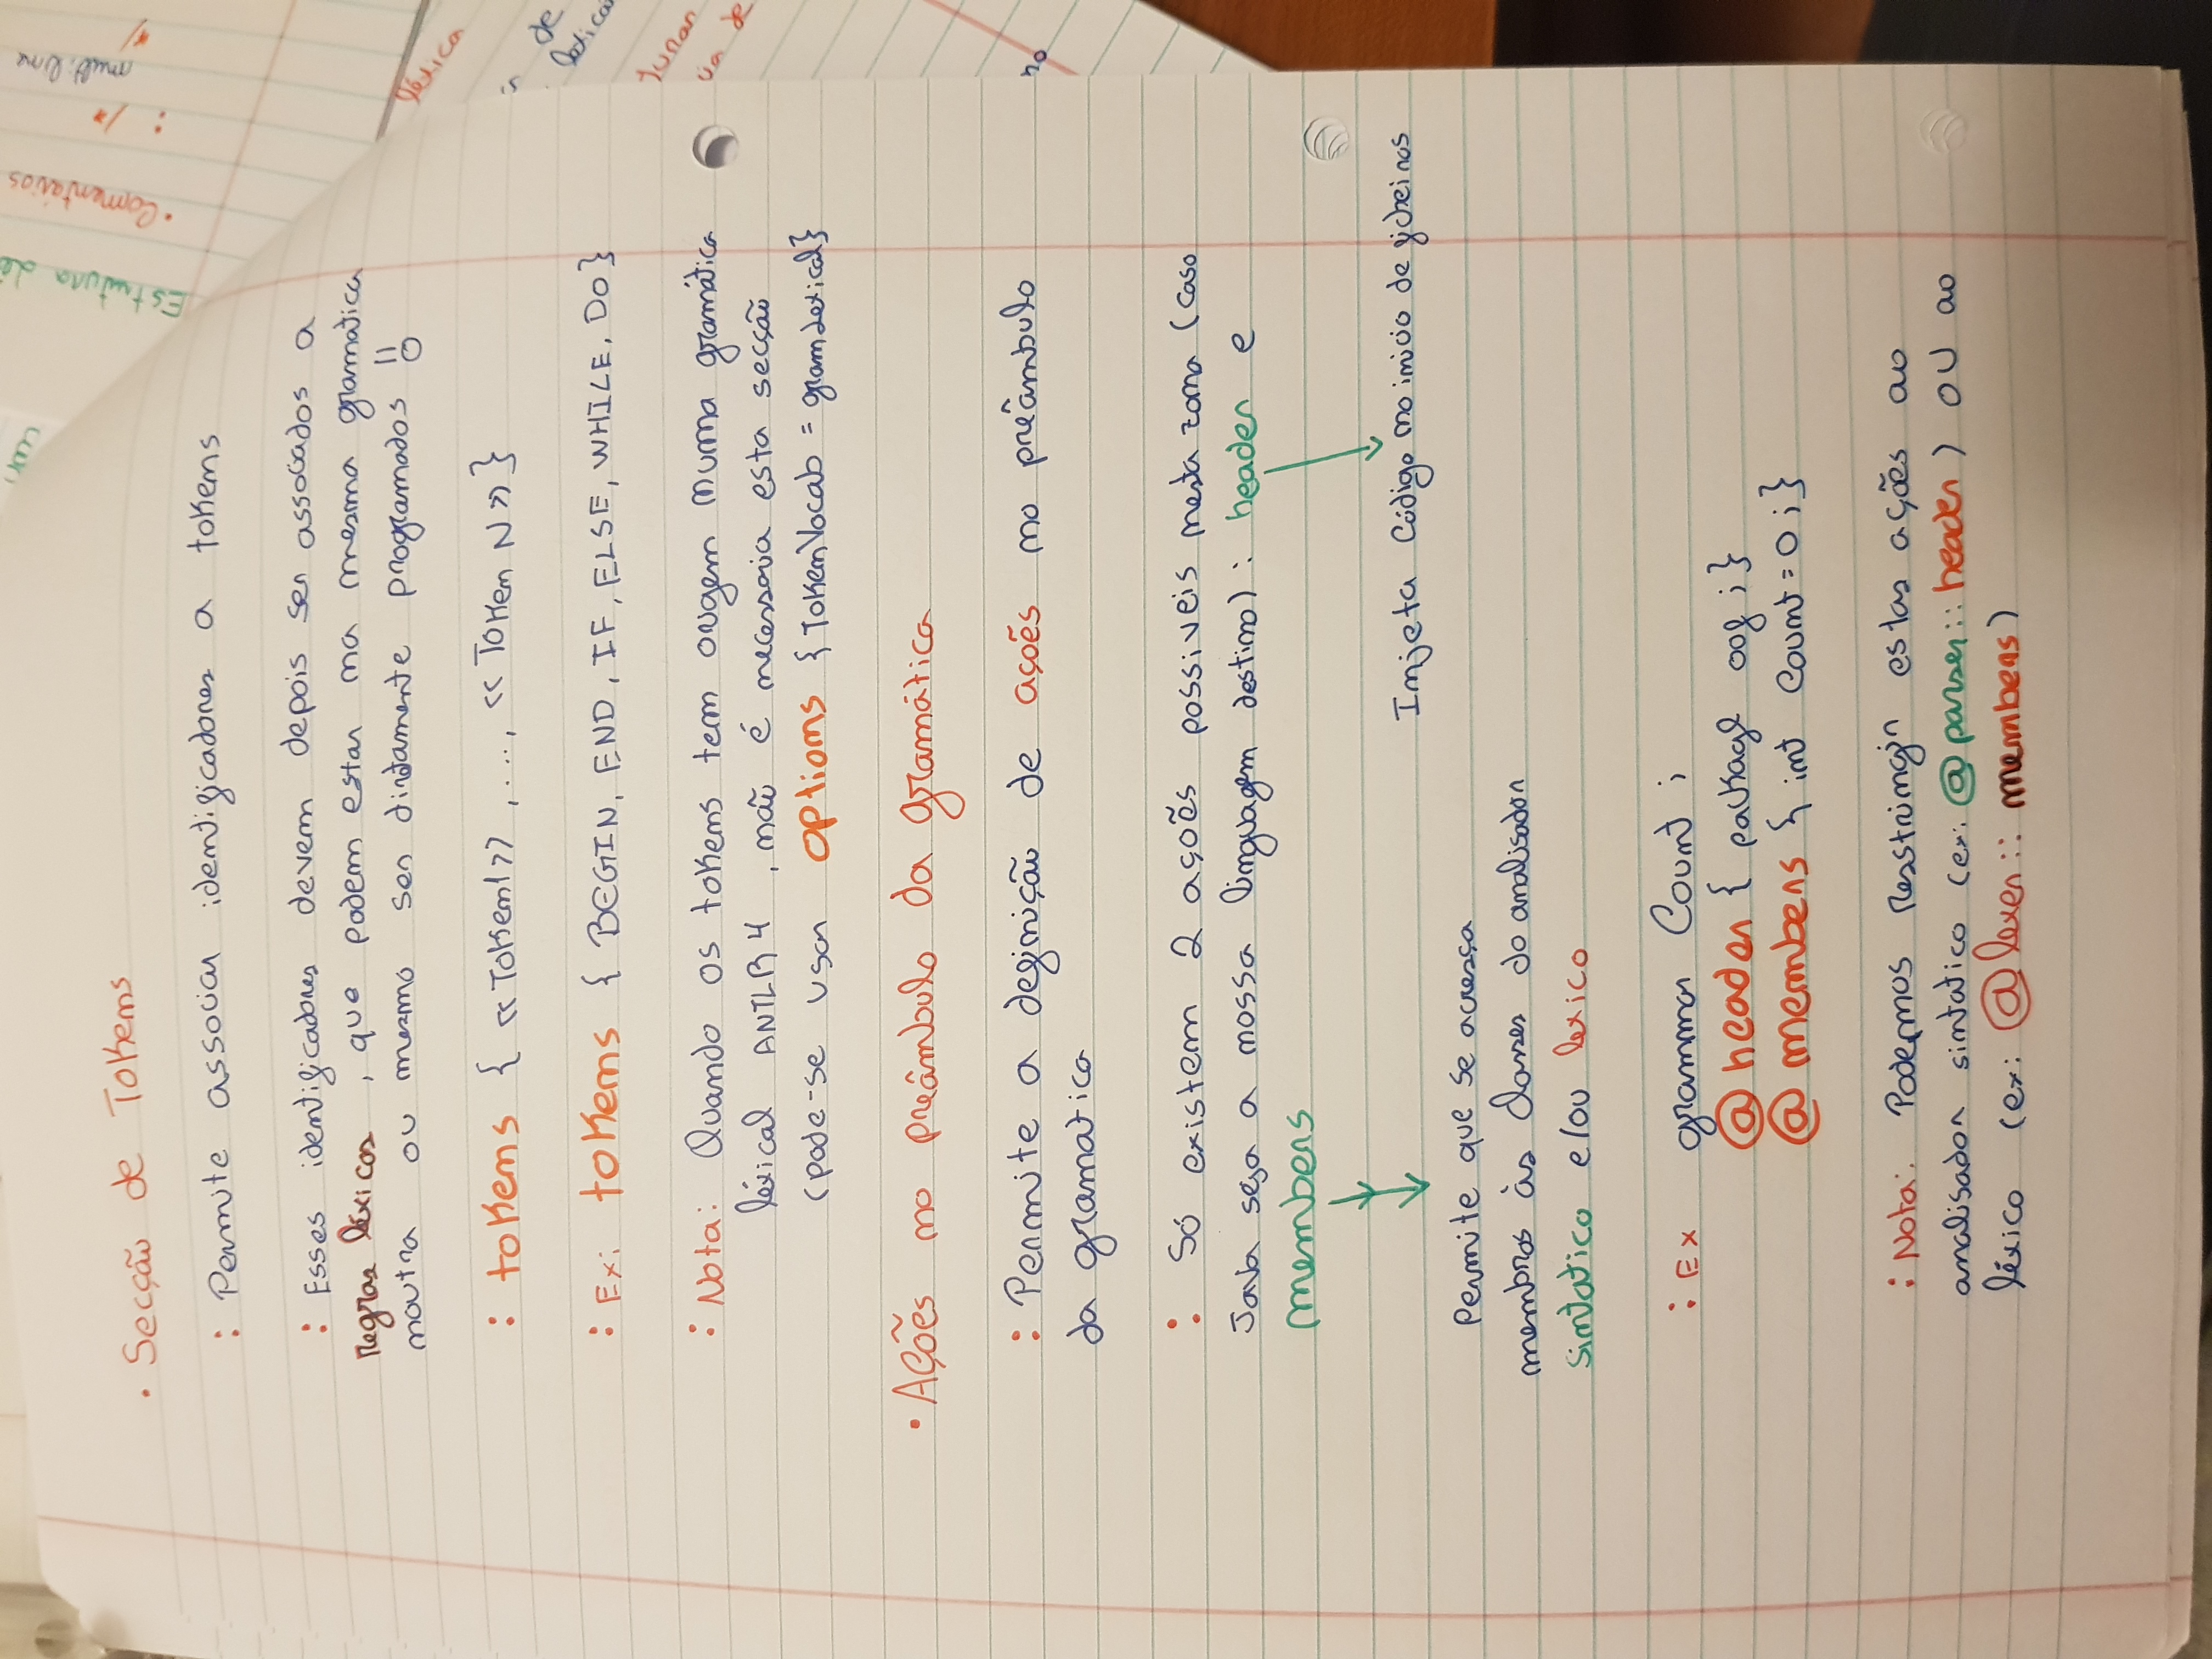 • Secção de Tokens
: Permite associar identificadores a tokens
: Esses identificadores devem depois ser associados a
regras léxicas , que podem estar na mesma gramatica
noutra ou mesmo ser diretamente programados !!
: tokens { <<Token1>> , ..., << Token N >> }
: Ex: tokens { BEGIN, END, IF, ELSE, WHILE, DO }
: Nota: Quando os tokens tem origem numa gramática
léxical ANTLR4 , não é necessaria esta secção
(pode-se usar options { TokenVocab = gramLexical}
• Ações no preâmbulo da gramática
: Permite a definição de ações no preâmbulo
da gramatica
: Só existem 2 ações possiveis nesta zona (caso
Java seja a nossa linguagem destino) : header e
members
Injeta Código no inicio de ficheiros
Permite que se acresça
membros às classes do analisador
sintatico e/ou lexico
: Ex grammar Count ;
@ header { package oof ; }
@ members { int Count = 0 ; }
: Nota: Podemos resstringir estas ações ao
analisador sintatico (ex: @parser::header) OU ao
léxico (ex: @lexer::members)
Estrutura lé
• Comentários
: /*
multiline
*/
léxica
de
no